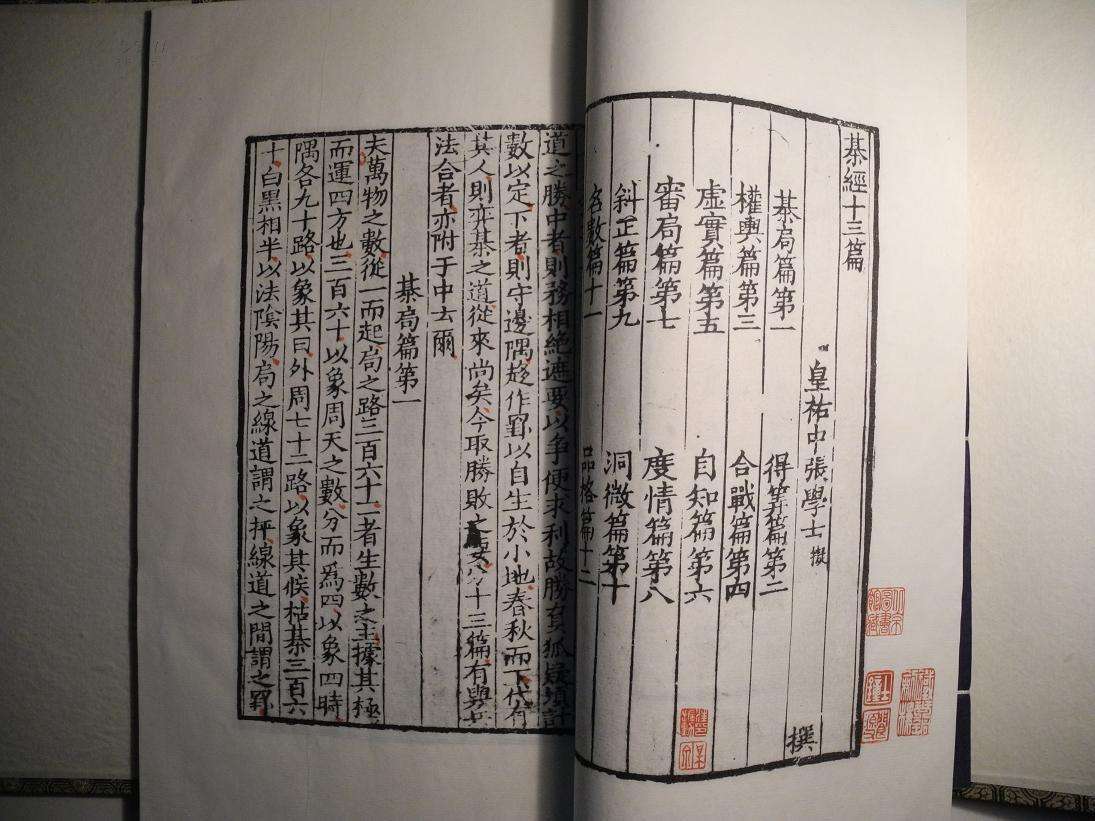 棊經十三篇
皇祐中張學士 擬 撰
棊局篇第一 得筭篇第二
權輿篇第三 合戰篇第四
虛實篇第五 自知篇第六
審局篇第七 度情篇第八
斜正篇第九 洞微篇第十
名數篇十一 品格篇十二
道之勝中者則務相絕遮要以争便求利故勝負狐疑須計
數以定下者則守邊隅趍作罫以自生於小地春秋而下代有
其人則弈棊之道從來尚矣今取勝敗之要分十三篇有與兵
法合者亦附于中云爾
棊局篇第一
夫萬物之數從一而起局之路三百六十一者生數之主據其極
而運四方也三百六十以象周天之數分而爲四以象四時
隅各九十路以象其日外周七十二路以象其候枯棊三百六
十白黑相半以法陰陽局之線道謂之枰線道之間謂之罫